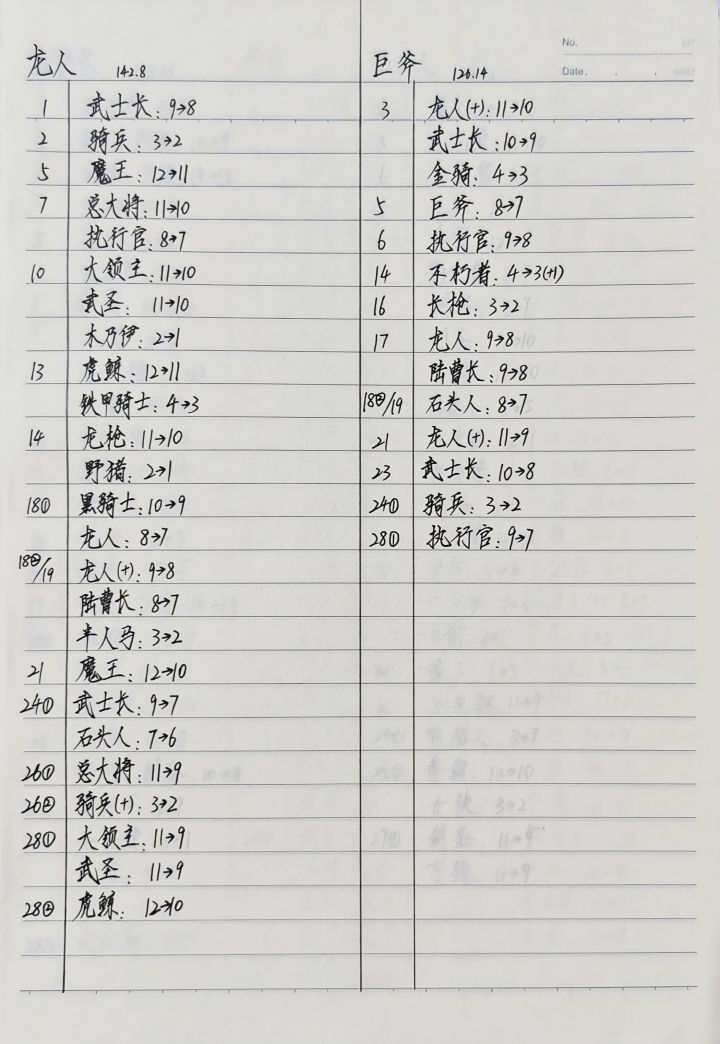 No.
Date.
龙人 142.8
1 武士长: 9→8
2 骑兵: 3→2
5 魔王: 12→11
7 总大将: 11→10
执行官: 8→7
10 大领主: 11→10
武圣: 11→10
木乃伊: 2→1
13 虎鲸: 12→11
铁甲骑士: 4→3
14 龙枪: 11→10
野猪: 2→1
18① 黑骑士: 10→9
龙人: 8→7
18②/19 龙人(+): 9→8
陆曹长: 8→7
半人马: 3→2
21 魔王: 12→10
24① 武士长: 9→7
石头人: 7→6
26① 总大将: 11→9
26② 骑兵(+): 3→2
28① 大领主: 11→9
武圣: 11→9
28② 虎鲸: 12→10
巨斧 126.14
3 龙人(+): 11→10
武士长: 10→9
金骑: 4→3
5 巨斧: 8→7
6 执行官: 9→8
14 不朽者: 4→3(+1)
16 长枪: 3→2
17 龙人: 9→8
陆曹长: 9→8
18②/19 石头人: 8→7
21 龙人(+): 11→9
23 武士长: 10→8
24① 骑兵: 3→2
28① 执行官: 9→7